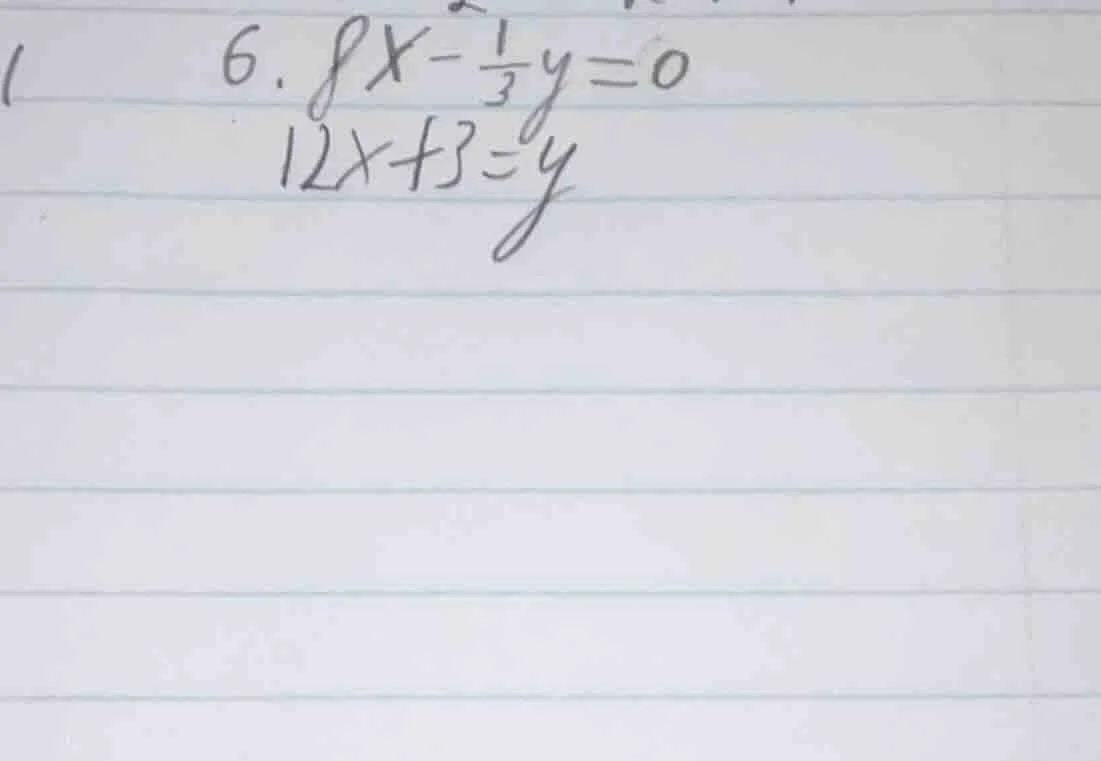 6. 8x - 1/3 y = 0
12x + 3 = y